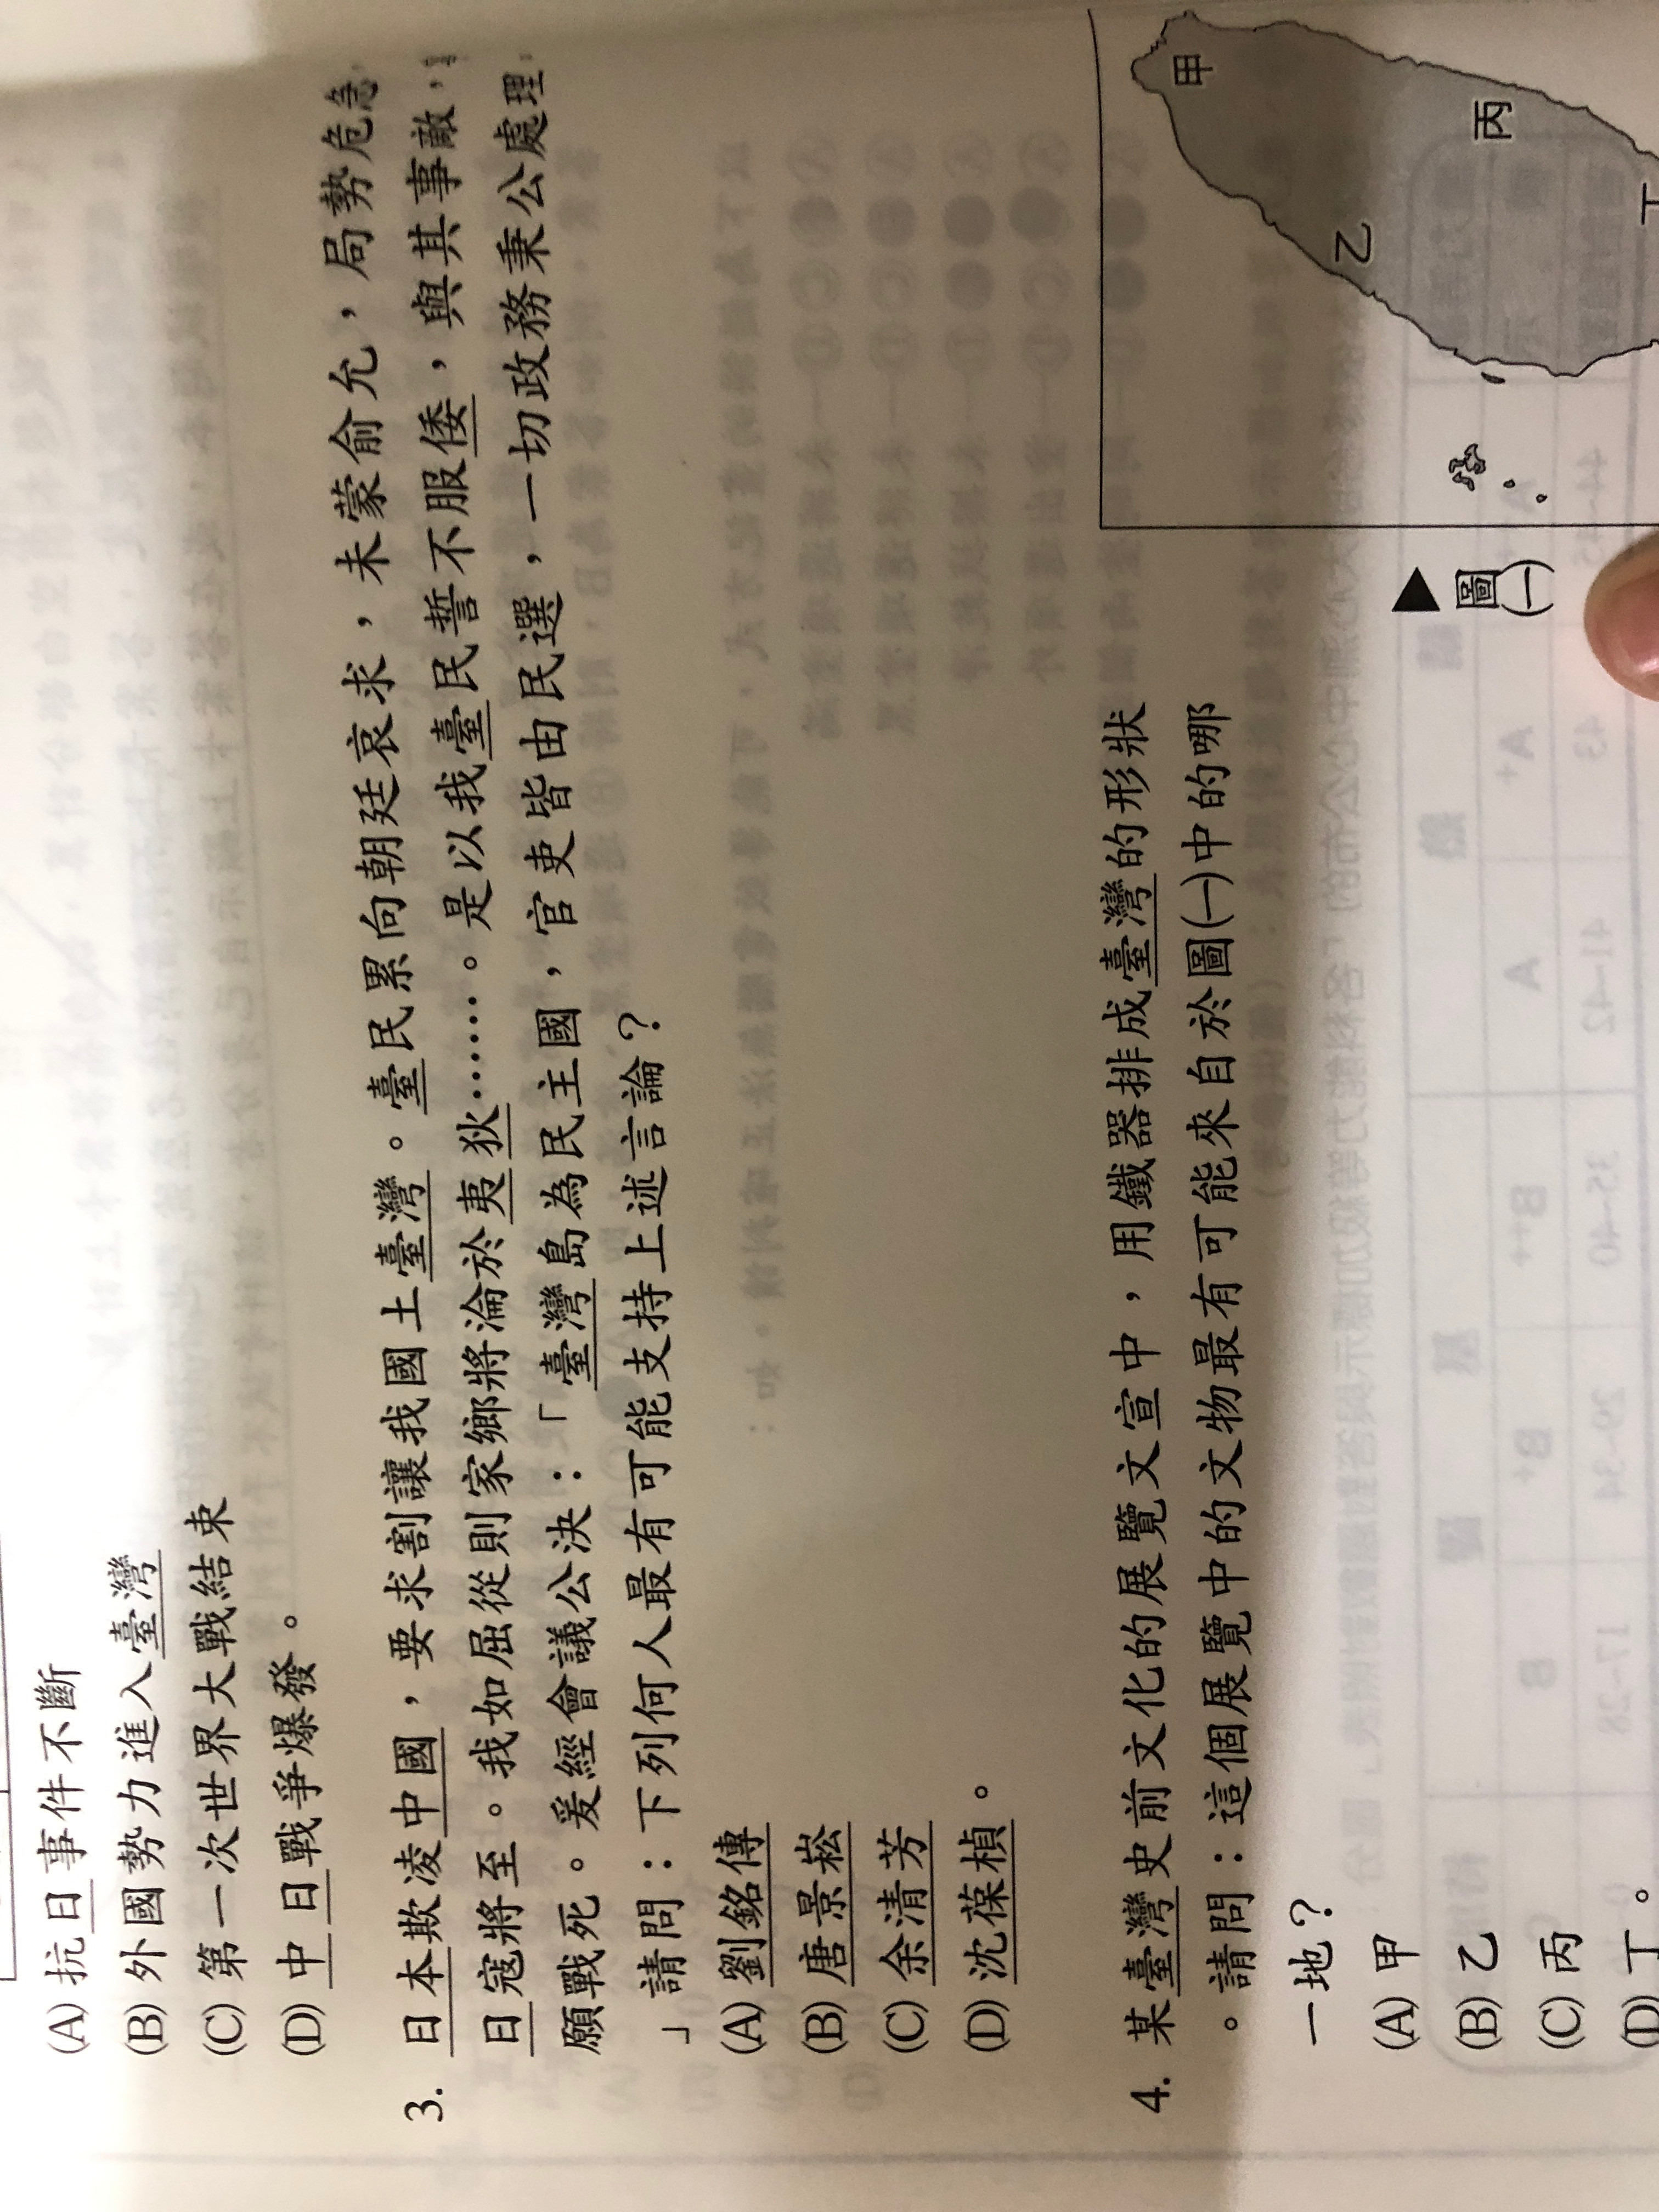 (A) 抗日事件不斷
(B) 外國勢力進入臺灣
(C) 第一次世界大戰結束
(D) 中日戰爭爆發。
3. 日本欺凌中國，要求割讓我國土臺灣。臺民累向朝廷哀求，未蒙俞允，局勢危急，
日寇將至。我如屈從則家鄉將淪於夷狄……。是以我臺民誓不服倭，與其事敵，
願戰死。爰經會議公決：「臺灣島為民主國，官吏皆由民選，一切政務秉公處理
」請問：下列何人最有可能支持上述言論？
(A) 劉銘傳
(B) 唐景崧
(C) 余清芳
(D) 沈葆楨。
4. 某臺灣史前文化的展覽文宣中，用鐵器排成臺灣的形狀
。請問：這個展覽中的文物最有可能來自於圖(一)中的哪
一地？
(A) 甲
(B) 乙
(C) 丙
(D) 丁。
甲
乙
丙
丁
▲圖(一)